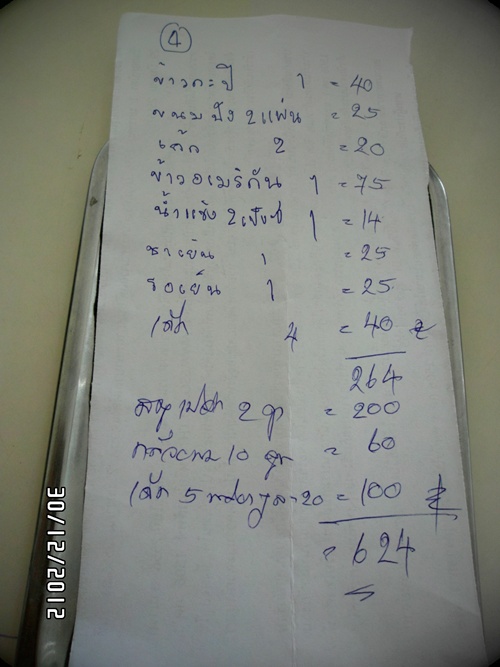 4
ข้าวกะปิ 1 = 40
ขนมปัง 2 แผ่น = 25
เค้ก 2 = 20
ข้าวอเมริกัน 1 = 75
น้ำแข็ง 2 เป๊ปซี่ 1 = 14
ชาเย็น 1 = 25
โอเย็น 1 = 25
เค้ก 4 = 40
264
2 = 200
10 = 60
เค้ก 5 20 = 100
= 624
30/12/2012